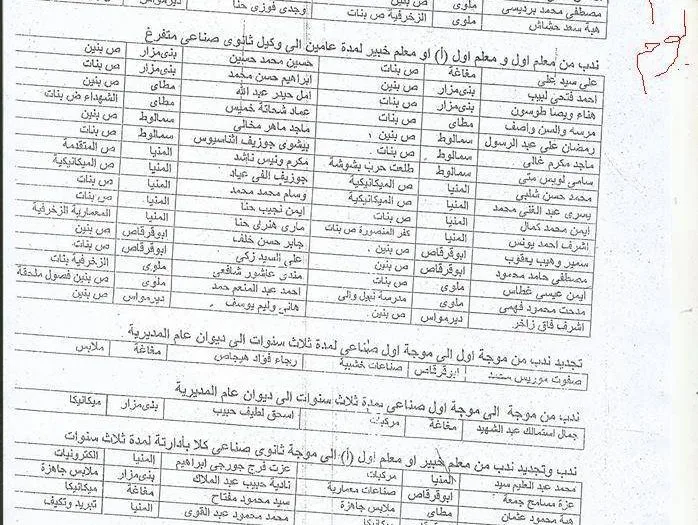 مصطفى محمد برديسى ملوى ص بنات وجدى فوزى حنا ديرمواس
هبة سعد حشاش ملوى الزخرفية ص بنات
ندب من معلم اول و معلم اول (أ) او معلم خبير لمدة عامين الى وكيل ثانوى صناعى متفرغ
على سيد على مغاغة ص بنات حسين محمد حسين بنى مزار ص بنين
احمد فتحى لبيب بنى مزار ص بنين ابراهيم حسن محمد بنى مزار ص بنات
هناء ويصا طوسون بنى مزار ص بنات امل حيدر عبد الله مطاى ص بنين
مرسه والسن واصف مطاى ص بنات عماد شحاتة خميس مطاى الشهداء ص بنات
رمضان على عبد الرسول سمالوط ص بنين ماجد ماهر مخالى سمالوط ص بنين
ماجد مكرم غالى سمالوط ص بنات بيشوى جوزيف اثناسيوس سمالوط ص بنات
سامى لويس متى سمالوط طلعت حرب بشوشة مكرم ونيس ناشد المنيا ص المتقدمة
محمد حسن شلبى المنيا ص الميكانيكية جوزيف الفى عياد المنيا ص الميكانيكية
يسرى عبد الغنى محمد المنيا ص الميكانيكية وسام محمد محمد المنيا ص بنات
ايمن محمد كمال المنيا ص بنات ايمن نجيب حنا المنيا ص بنات
اشرف احمد يونس المنيا كفر المنصورة ص بنات مارى هنرى حنا المنيا المعمارية الزخرفية
سمير وهيب يعقوب ابوقرقاص ص بنين جابر حسن خلف ابوقرقاص ص بنين
مصطفى حامد محمود ابوقرقاص ص بنين على السيد زكى ابوقرقاص ص بنات
ايمن عيسى غطاس ملوى ص بنات مندى عاشور شافعى ملوى الزخرفية بنات
مدحت محمود فهمى ملوى مدرسة نبيل والى احمد عبد المنعم حمد ملوى ص بنين فصول ملحقة
اشرف فائق زاخر ديرمواس ص بنين هانى وليم يوسف ديرمواس ص بنين
تجديد ندب من موجة اول الى موجة اول صناعى لمدة ثلاث سنوات الى ديوان عام المديرية
صفوت موريس ابوقرقاص صناعات خشبية رجاء فؤاد مغاغة ملابس
ندب من موجة الى موجة اول صناعى لمدة ثلاث سنوات الى ديوان عام المديرية
جمال استمالك عبد الشهيد مغاغة مركبات اسحق لطيف حبيب بنى مزار ميكانيكا
ندب وتجديد ندب من معلم خبير او معلم اول (أ) الى موجة ثانوى صناعى كلا بأدارتة لمدة ثلاث سنوات
محمد عبد العليم سيد المنيا مركبات عزت فرج جورجى ابراهيم المنيا الكترونيات
عزة مسامح جمعة ابوقرقاص صناعات معمارية نادية حبيب عبد الملاك بنى مزار ملابس جاهزة
محمود عثمان ملابس جاهزة سيد محمود مفتاح مغاغة ميكانيكا
ميكانيكا محمد محمود عبد القوى المنيا تبريد وتكيف